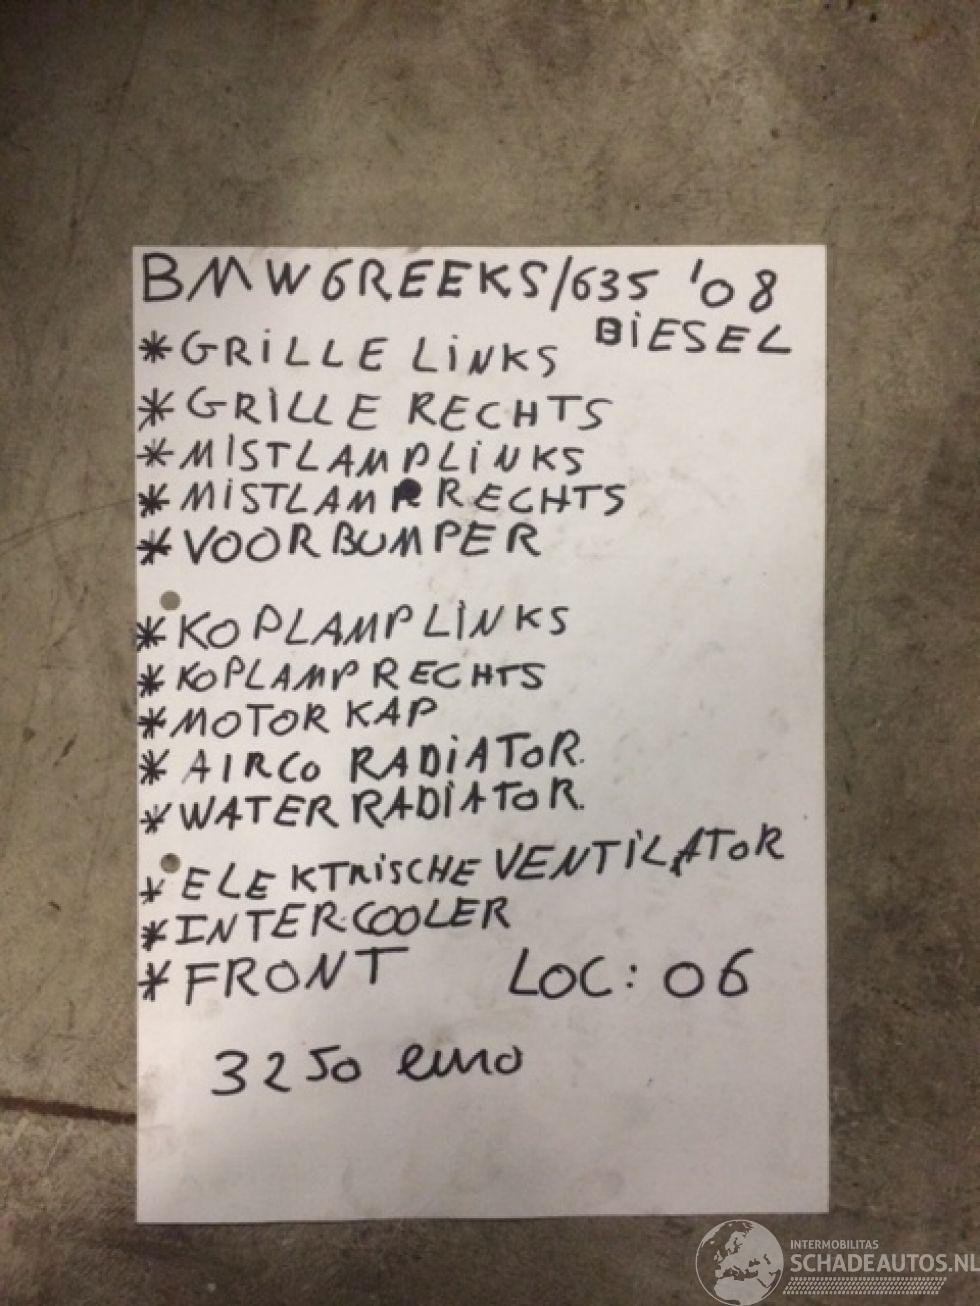 BMW 6REEKS/635 '08
BIESEL
*GRILLE LINKS
*GRILLE RECHTS
*MISTLAMP LINKS
*MISTLAMP RECHTS
*VOORBUMPER
*KOPLAMP LINKS
*KOPLAMP RECHTS
*MOTORKAP
*AIRCO RADIATOR.
*WATER RADIATOR.
*ELEKTRISCHE VENTILATOR
*INTERCOOLER
*FRONT LOC: 06
3250 euro
INTERMOBILITAS
SCHADEAUTOS.NL